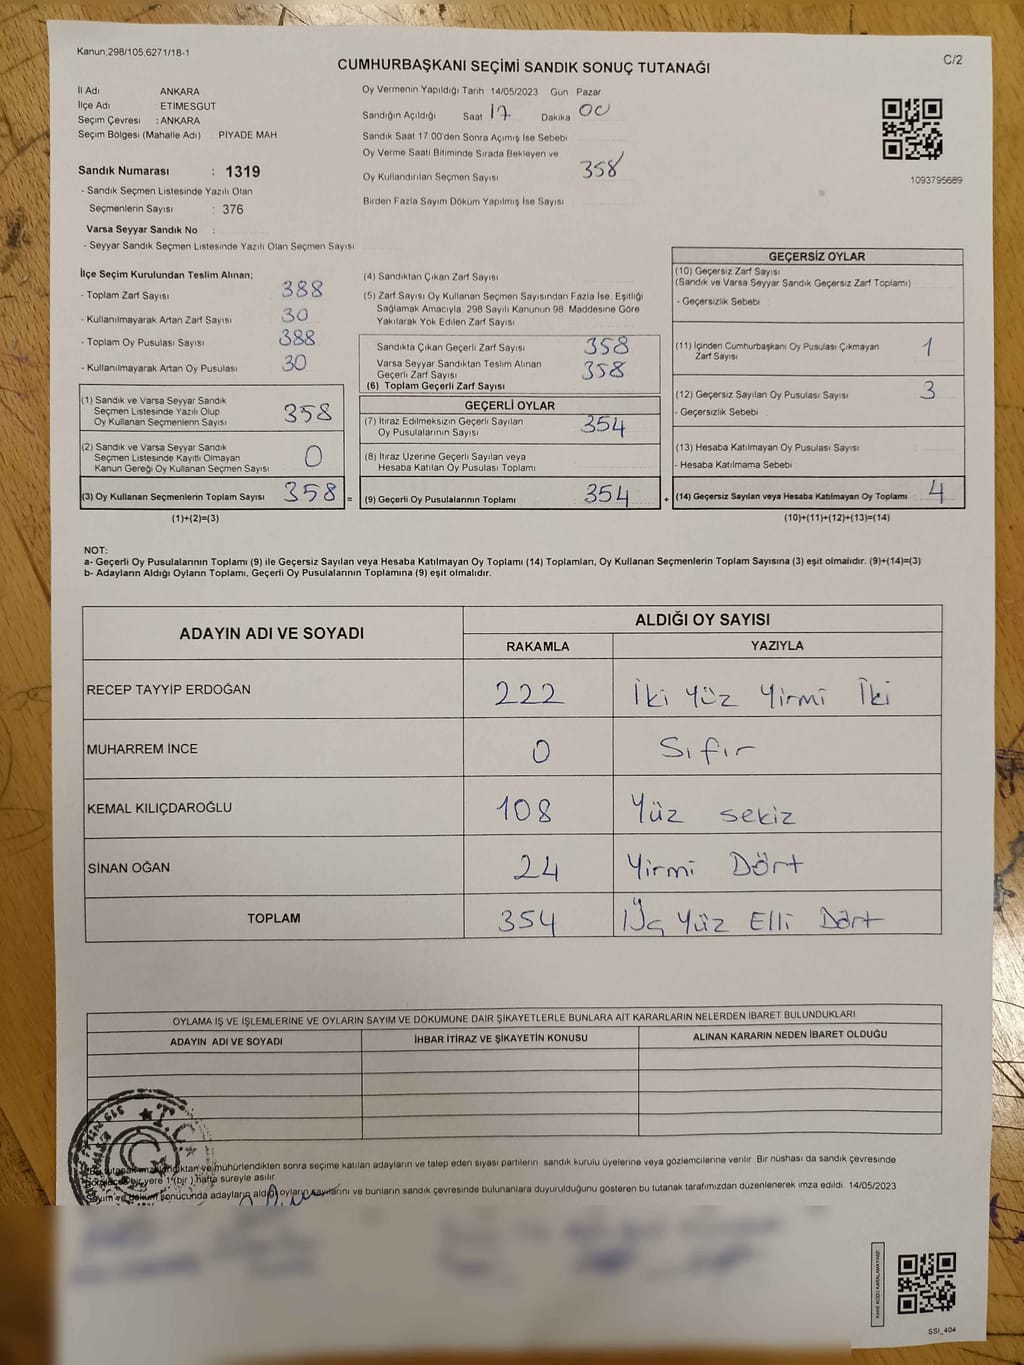 Kanun:298/105,6271/18-1
C/2
CUMHURBAŞKANI SEÇİMİ SANDIK SONUÇ TUTANAĞI
İl Adı ANKARA
İlçe Adı : ETİMESGUT
Seçim Çevresi : ANKARA
Seçim Bölgesi (Mahalle Adı) PİYADE MAH
Sandık Numarası : 1319
- Sandık Seçmen Listesinde Yazılı Olan
Seçmenlerin Sayısı : 376
Varsa Seyyar Sandık No :
- Seyyar Sandık Seçmen Listesinde Yazılı Olan Seçmen Sayısı
Oy Vermenin Yapıldığı Tarih 14/05/2023 Gün Pazar
Sandığın Açıldığı Saat 17 Dakika 00
Sandık Saat 17:00'den Sonra Açımış İse Sebebi
Oy Verme Saati Bitiminde Sırada Bekleyen ve
Oy Kullandırılan Seçmen Sayısı 358
Birden Fazla Sayım Döküm Yapılmış İse Sayısı
1093795689
İlçe Seçim Kurulundan Teslim Alınan;
- Toplam Zarf Sayısı 388
- Kullanılmayarak Artan Zarf Sayısı 30
- Toplam Oy Pusulası Sayısı 388
- Kullanılmayarak Artan Oy Pusulası 30
(1) Sandık ve Varsa Seyyar Sandık
Seçmen Listesinde Yazılı Olup
Oy Kullanan Seçmenlerin Sayısı 358
(2) Sandık ve Varsa Seyyar Sandık
Seçmen Listesinde Kayıtlı Olmayan
Kanun Gereği Oy Kullanan Seçmen Sayısı 0
(3) Oy Kullanan Seçmenlerin Toplam Sayısı 358 =
(1)+(2)=(3)
(4) Sandıktan Çıkan Zarf Sayısı
(5) Zarf Sayısı Oy Kullanan Seçmen Sayısından Fazla İse, Eşitliği
Sağlamak Amacıyla, 298 Sayılı Kanunun 98. Maddesine Göre
Yakılarak Yok Edilen Zarf Sayısı
Sandıkta Çıkan Geçerli Zarf Sayısı 358
Varsa Seyyar Sandıktan Teslim Alınan
Geçerli Zarf Sayısı 358
(6) Toplam Geçerli Zarf Sayısı
GEÇERLİ OYLAR
(7) İtiraz Edilmeksizin Geçerli Sayılan
Oy Pusulalarının Sayısı 354
(8) İtiraz Üzerine Geçerli Sayılan veya
Hesaba Katılan Oy Pusulası Toplamı
(9) Geçerli Oy Pusulalarının Toplamı 354 +
GEÇERSİZ OYLAR
(10) Geçersiz Zarf Sayısı
(Sandık ve Varsa Seyyar Sandık Geçersiz Zarf Toplamı)
- Geçersizlik Sebebi
(11) İçinden Cumhurbaşkanı Oy Pusulası Çıkmayan
Zarf Sayısı 1
(12) Geçersiz Sayılan Oy Pusulası Sayısı 3
- Geçersizlik Sebebi
(13) Hesaba Katılmayan Oy Pusulası Sayısı
- Hesaba Katılmama Sebebi
(14) Geçersiz Sayılan veya Hesaba Katılmayan Oy Toplamı 4
(10)+(11)+(12)+(13)=(14)
NOT:
a- Geçerli Oy Pusulalarının Toplamı (9) ile Geçersiz Sayılan veya Hesaba Katılmayan Oy Toplamı (14) Toplamları, Oy Kullanan Seçmenlerin Toplam Sayısına (3) eşit olmalıdır. (9)+(14)=(3)
b- Adayların Aldığı Oyların Toplamı, Geçerli Oy Pusulalarının Toplamına (9) eşit olmalıdır.
ADAYIN ADI VE SOYADI
ALDIĞI OY SAYISI
RAKAMLA YAZIYLA
RECEP TAYYİP ERDOĞAN 222 İki Yüz Yirmi İki
MUHARREM İNCE 0 Sıfır
KEMAL KILIÇDAROĞLU 108 Yüz sekiz
SİNAN OĞAN 24 Yirmi Dört
TOPLAM 354 Üç Yüz Elli Dört
OYLAMA İŞ VE İŞLEMLERİNE VE OYLARIN SAYIM VE DÖKÜMÜNE DAİR ŞİKAYETLERLE BUNLARA AİT KARARLARIN NELERDEN İBARET BULUNDUKLARI
ADAYIN ADI VE SOYADI İHBAR İTİRAZ VE ŞİKAYETİN KONUSU ALINAN KARARIN NEDEN İBARET OLDUĞU
T.C.
Bu tutanak imzalandıktan ve mühürlendikten sonra seçime katılan adayların ve talep eden siyasi partilerin sandık kurulu üyelerine veya gözlemcilerine verilir. Bir nüshası da sandık çevresinde
bir yere 1 (bir) hafta süreyle asılır
Sayım ve döküm sonucunda adayların aldığı oyların sayılarını ve bunların sandık çevresinde bulunanlara duyurulduğunu gösteren bu tutanak tarafımızdan düzenlenerek imza edildi. 14/05/2023
KARE KODU KARALAMAYINIZ!
SSI_404